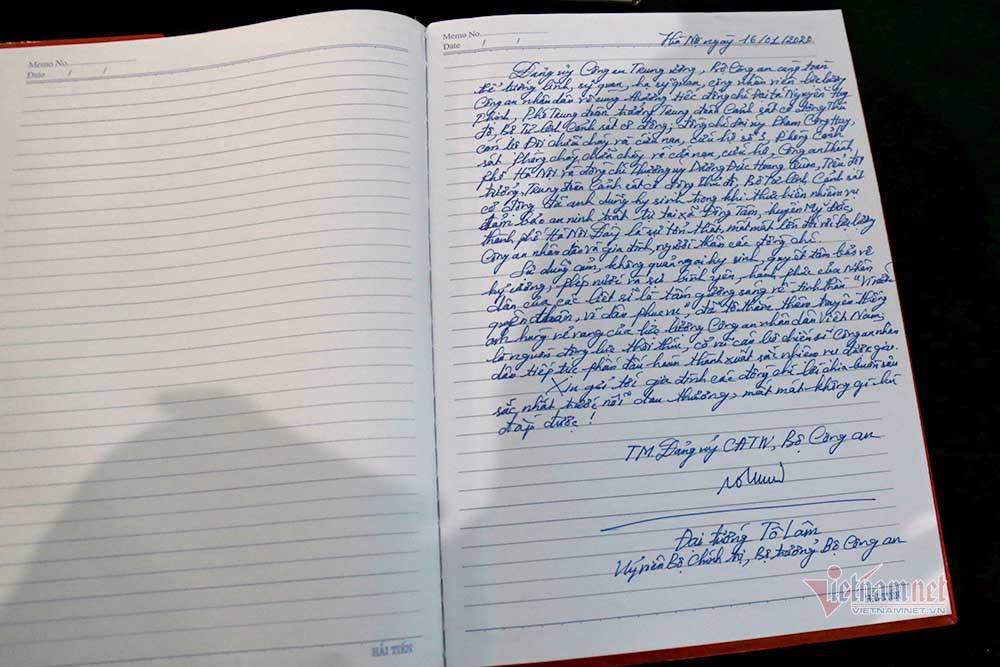 Memo No.
Date / /
HẢI TIẾN
Memo No.
Date / /
Hà Nội, ngày 16/01/2020
Đảng ủy Công an Trung ương, Bộ Công an cùng toàn
thể tướng lĩnh, sỹ quan, hạ sỹ quan, công nhân viên lực lượng
Công an nhân dân vô cùng thương tiếc đồng chí Đại tá Nguyễn Huy
Thịnh, Phó Trung đoàn trưởng Trung đoàn Cảnh sát cơ động Thủ
đô, Bộ Tư lệnh Cảnh sát cơ động; đồng chí Đại úy Phạm Công Huy,
cán bộ Đội chữa cháy và cứu nạn, cứu hộ số 3, Phòng Cảnh
sát Phòng cháy, chữa cháy và cứu nạn, cứu hộ, Công an Thành
phố Hà Nội và đồng chí Thượng úy Dương Đức Hoàng Quân, Tiểu đội
trưởng, Trung đoàn Cảnh sát cơ động Thủ đô, Bộ Tư lệnh Cảnh sát
cơ động đã anh dũng hy sinh trong khi thực hiện nhiệm vụ
đảm bảo an ninh trật tự tại xã Đồng Tâm, huyện Mỹ Đức,
thành phố Hà Nội. Đây là sự tổn thất, mất mát lớn đối với lực lượng
Công an nhân dân và gia đình, người thân các đồng chí.
Sự dũng cảm, không quản ngại hy sinh, quyết tâm bảo vệ
kỷ cương, phép nước và sự bình yên, hạnh phúc của Nhân
dân của các liệt sĩ là tấm gương sáng về tinh thần "Vì nước
quên thân, vì dân phục vụ", đã tô thắm thêm truyền thống
anh hùng vẻ vang của lực lượng Công an nhân dân Việt Nam,
là nguồn động lực thôi thúc, cổ vũ cán bộ chiến sĩ Công an nhân
dân tiếp tục phấn đấu hoàn thành xuất sắc nhiệm vụ được giao.
Xin gửi tới gia đình các đồng chí lời chia buồn sâu
sắc nhất trước nỗi đau thương, mất mát không gì bù
đắp được!
TM. Đảng ủy CATW, Bộ Công an
Đại tướng Tô Lâm
Ủy viên Bộ Chính trị, Bộ trưởng Bộ Công an
Vietnamnet
VIETNAMNET.VN